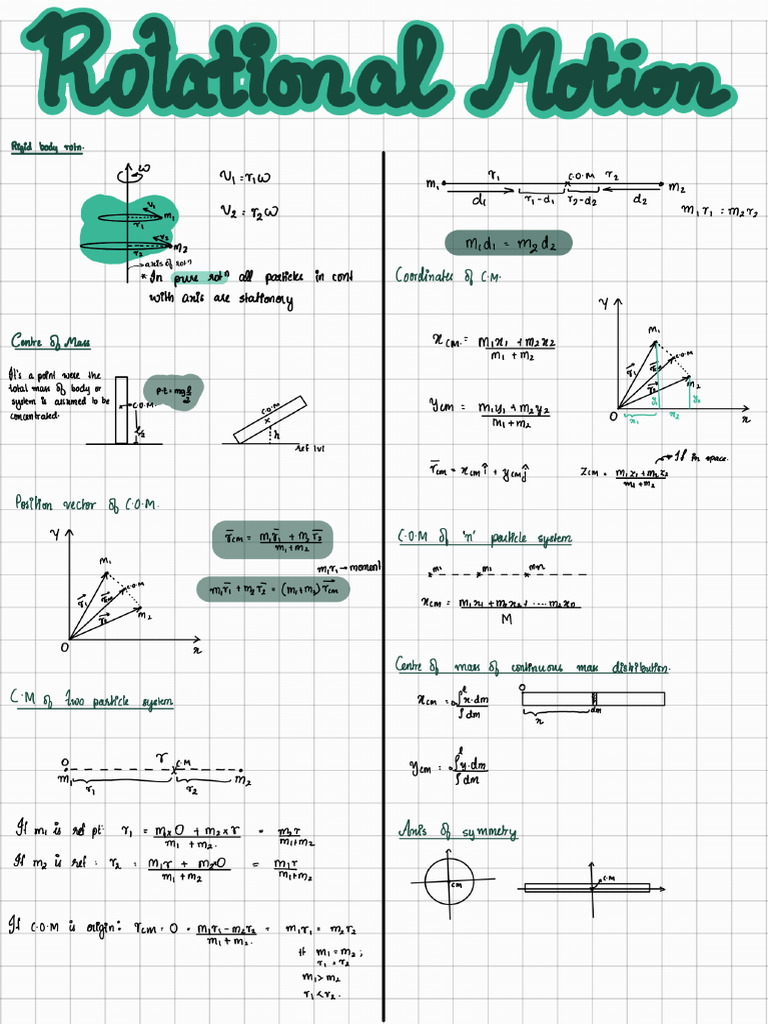 Rotational Motion
Rigid body rotn.
ω
V₁ = r₁ω
V₂ = r₂ω
v₁
m₁
r₁
v₂
m₂
r₂
axis of rotⁿ
* In pure rotⁿ all particles in cont
with axis are stationery
Centre of Mass
It's a point were the
total mass of body or
system is assumed to be
concentrated.
C.O.M.
l/2
P.E = mg l/2
C.O.M
h
ref lvl
Position vector of C.O.M.
Y
M₁
C.O.M
r₁
rcm
r₂
M₂
O
x
r̄cm = m₁r̄₁ + m₂r̄₂ / m₁+m₂
m₁r₁ → moment
m₁r̄₁ + m₂r̄₂ = (m₁+m₂) r̄cm
C.M of two particle system
O
r
C.M
m₁
m₂
r₁
r₂
If m₁ is ref pt: r₁ = m₁x0 + m₂xr / m₁ + m₂. = m₂r / m₁+m₂
If m₂ is ref : r₂ = m₁r + m₂x0 / m₁+m₂ = m₁r / m₁+m₂
If C.O.M is origin: rcm = 0 = m₁r₁ - m₂r₂ / m₁+m₂. = m₁r₁ = m₂r₂
If m₁ = m₂ ;
r₁ = r₂
m₁ > m₂
r₁ < r₂.
r₁
C.O.M
r₂
m₁
m₂
d₁
r₁-d₁
r₂-d₂
d₂
m₁r₁ = m₂r₂
m₁d₁ = m₂d₂
Coordinates of C.M.
xcm. = m₁x₁ + m₂x₂ / m₁ + m₂
ycm = m₁y₁ + m₂y₂ / m₁+m₂
Y
M₁
C.O.M
r₁
rcm
r₂
m₂
y₁
y₂
O
x₁
x₂
x
If in space.
r̄cm = xcm î + ycm ĵ
Zcm = m₁z₁+m₂z₂ / m₁+m₂
C.O.M of 'n' particle system
m₁
m₁
mn
xcm = m₁x₁+m₂x₂+ .... mnxn / M
Centre of mass of continuous mass distribution.
xcm = ₀∫ˡ x·dm / ∫dm
O
x
dm
ycm = ₀∫ˡ y·dm / ∫dm
Axis of symmetry
CM
C.M